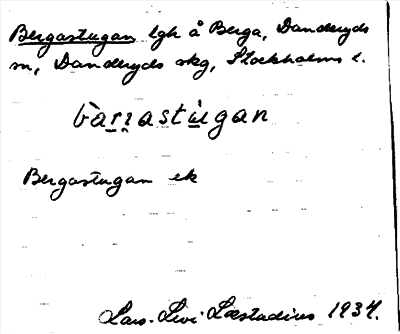 Bergastugan lgh å Berga, Danderyds
sn, Danderyds skg, Stockholms l.
bàr̤r̤astùgan
Bergastugan ek
Lars-Levi Læstadius 1934.